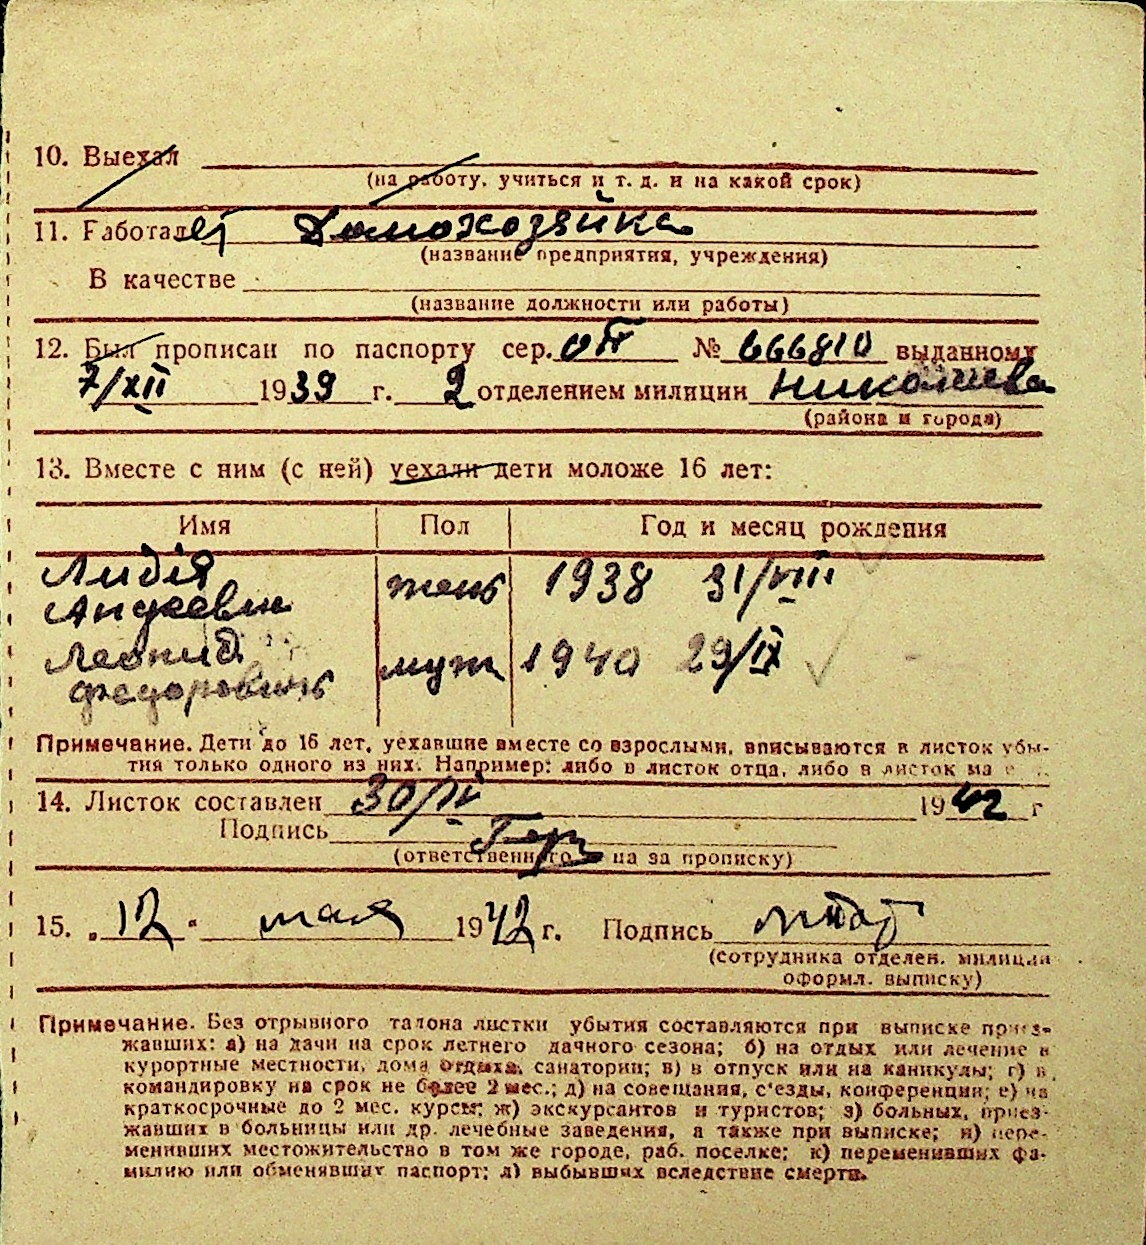 10. Выехал
(на работу, учиться и т. д. и на какой срок)
11. Работает Домохозяйка
(название предприятия, учреждения)
В качестве
(название должности или работы)
12. Был прописан по паспорту сер. № 666810 выданному
7/XII 1939 г. 2 отделением милиции Николаева
(района и города)
13. Вместе с ним (с ней) уехали дети моложе 16 лет:
Имя Пол Год и месяц рождения
Лидія
Андреевн жень 1938 31/VIII
Леонид
Федорович муж 1940 29/IX
Примечание. Дети до 16 лет, уехавшие вместе со взрослыми, вписываются в листок убы-
тия только одного из них. Например: либо в листок отца, либо в листок
14. Листок составлен 30/IV 1942 г
Подпись
(ответственного на за прописку)
15. „12" мая 1942 г. Подпись
(сотрудника отделен. милиции
оформл. выписку)
Примечание. Без отрывного талона листки убытия составляются при выписке приез-
жавших: а) на дачи на срок летнего дачного сезона; б) на отдых или лечение в
курортные местности, дома отдыха, санатории; в) в отпуск или на каникулы; г) в
командировку на срок не более 2 мес.; д) на совещания, с'езды, конференции; е) на
краткосрочные до 2 мес. курсы; ж) экскурсантов и туристов; з) больных, приез-
жавших в больницы или др. лечебные заведения, а также при выписке; и) пере-
менивших местожительство в том же городе, раб. поселке; к) переменивших фа-
милию или обменявших паспорт; л) выбывших вследствие смерти.